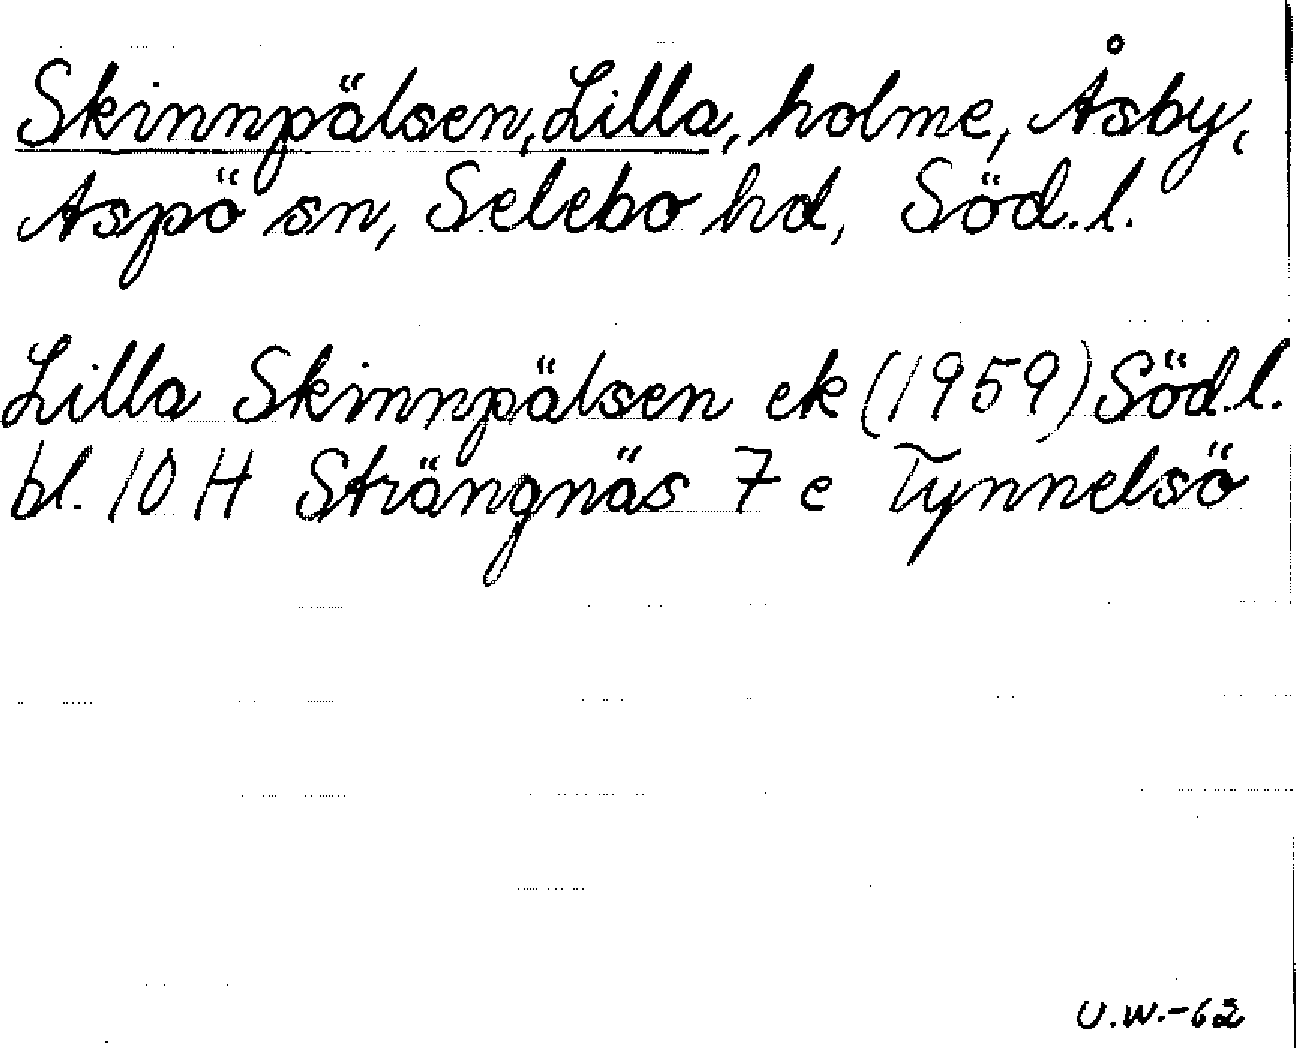 Skinnpälsen, Lilla, holme, Åsby,
Aspö sn, Selebo hd, Söd.l.
Lilla Skinnpälsen ek (1959) Söd.l.
bl. 10 H Strängnäs 7 e Tynnelsö
U.W.-62